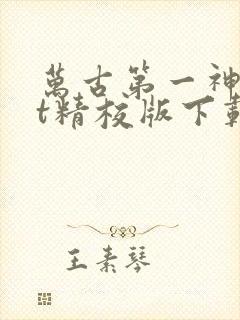 萬古第一神
t精校版下載
王素琴